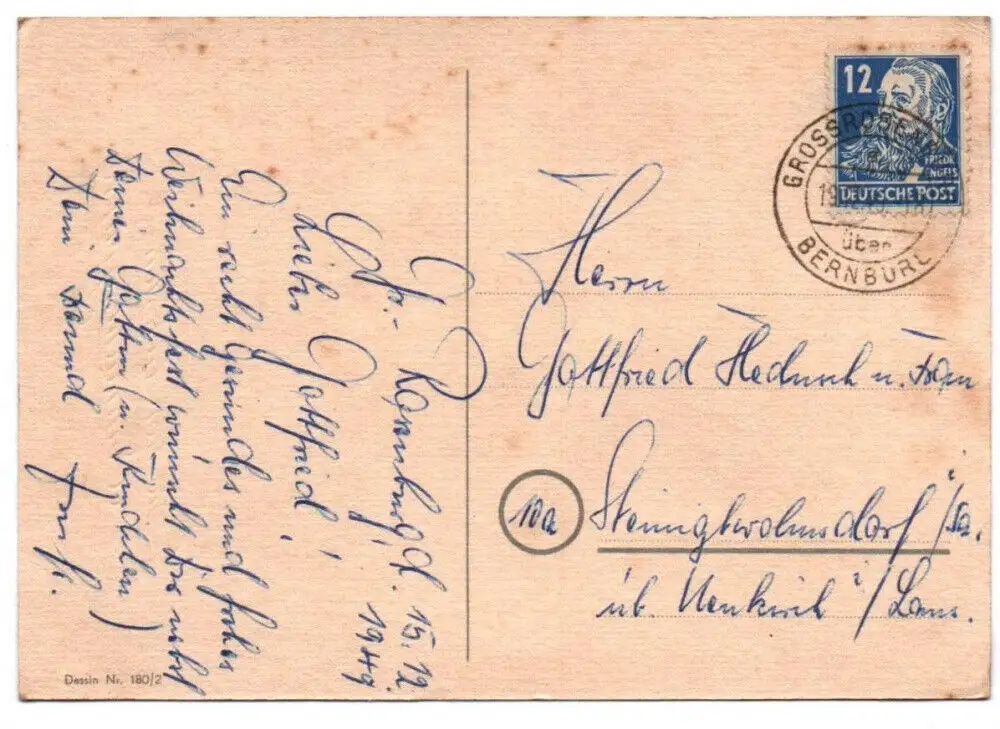 Gr.- Rosenburg, d. 15.12.
1949
Lieber Gottfried!
Ein recht Gesundes und frohes
Weihnachtsfest wünscht Dir nebst
Deiner Gattin (u. Kindchen)
Dein Freund
12
FRIEDR.
ENGELS
DEUTSCHE POST
GROSSROSEN
19
über
BERNBURG
Herrn
Gottfried u. Frau
10a
Steinigtwolmsdorf i/Sa.
üb. Neukirch i/Laus.
Dessin Nr. 180/2